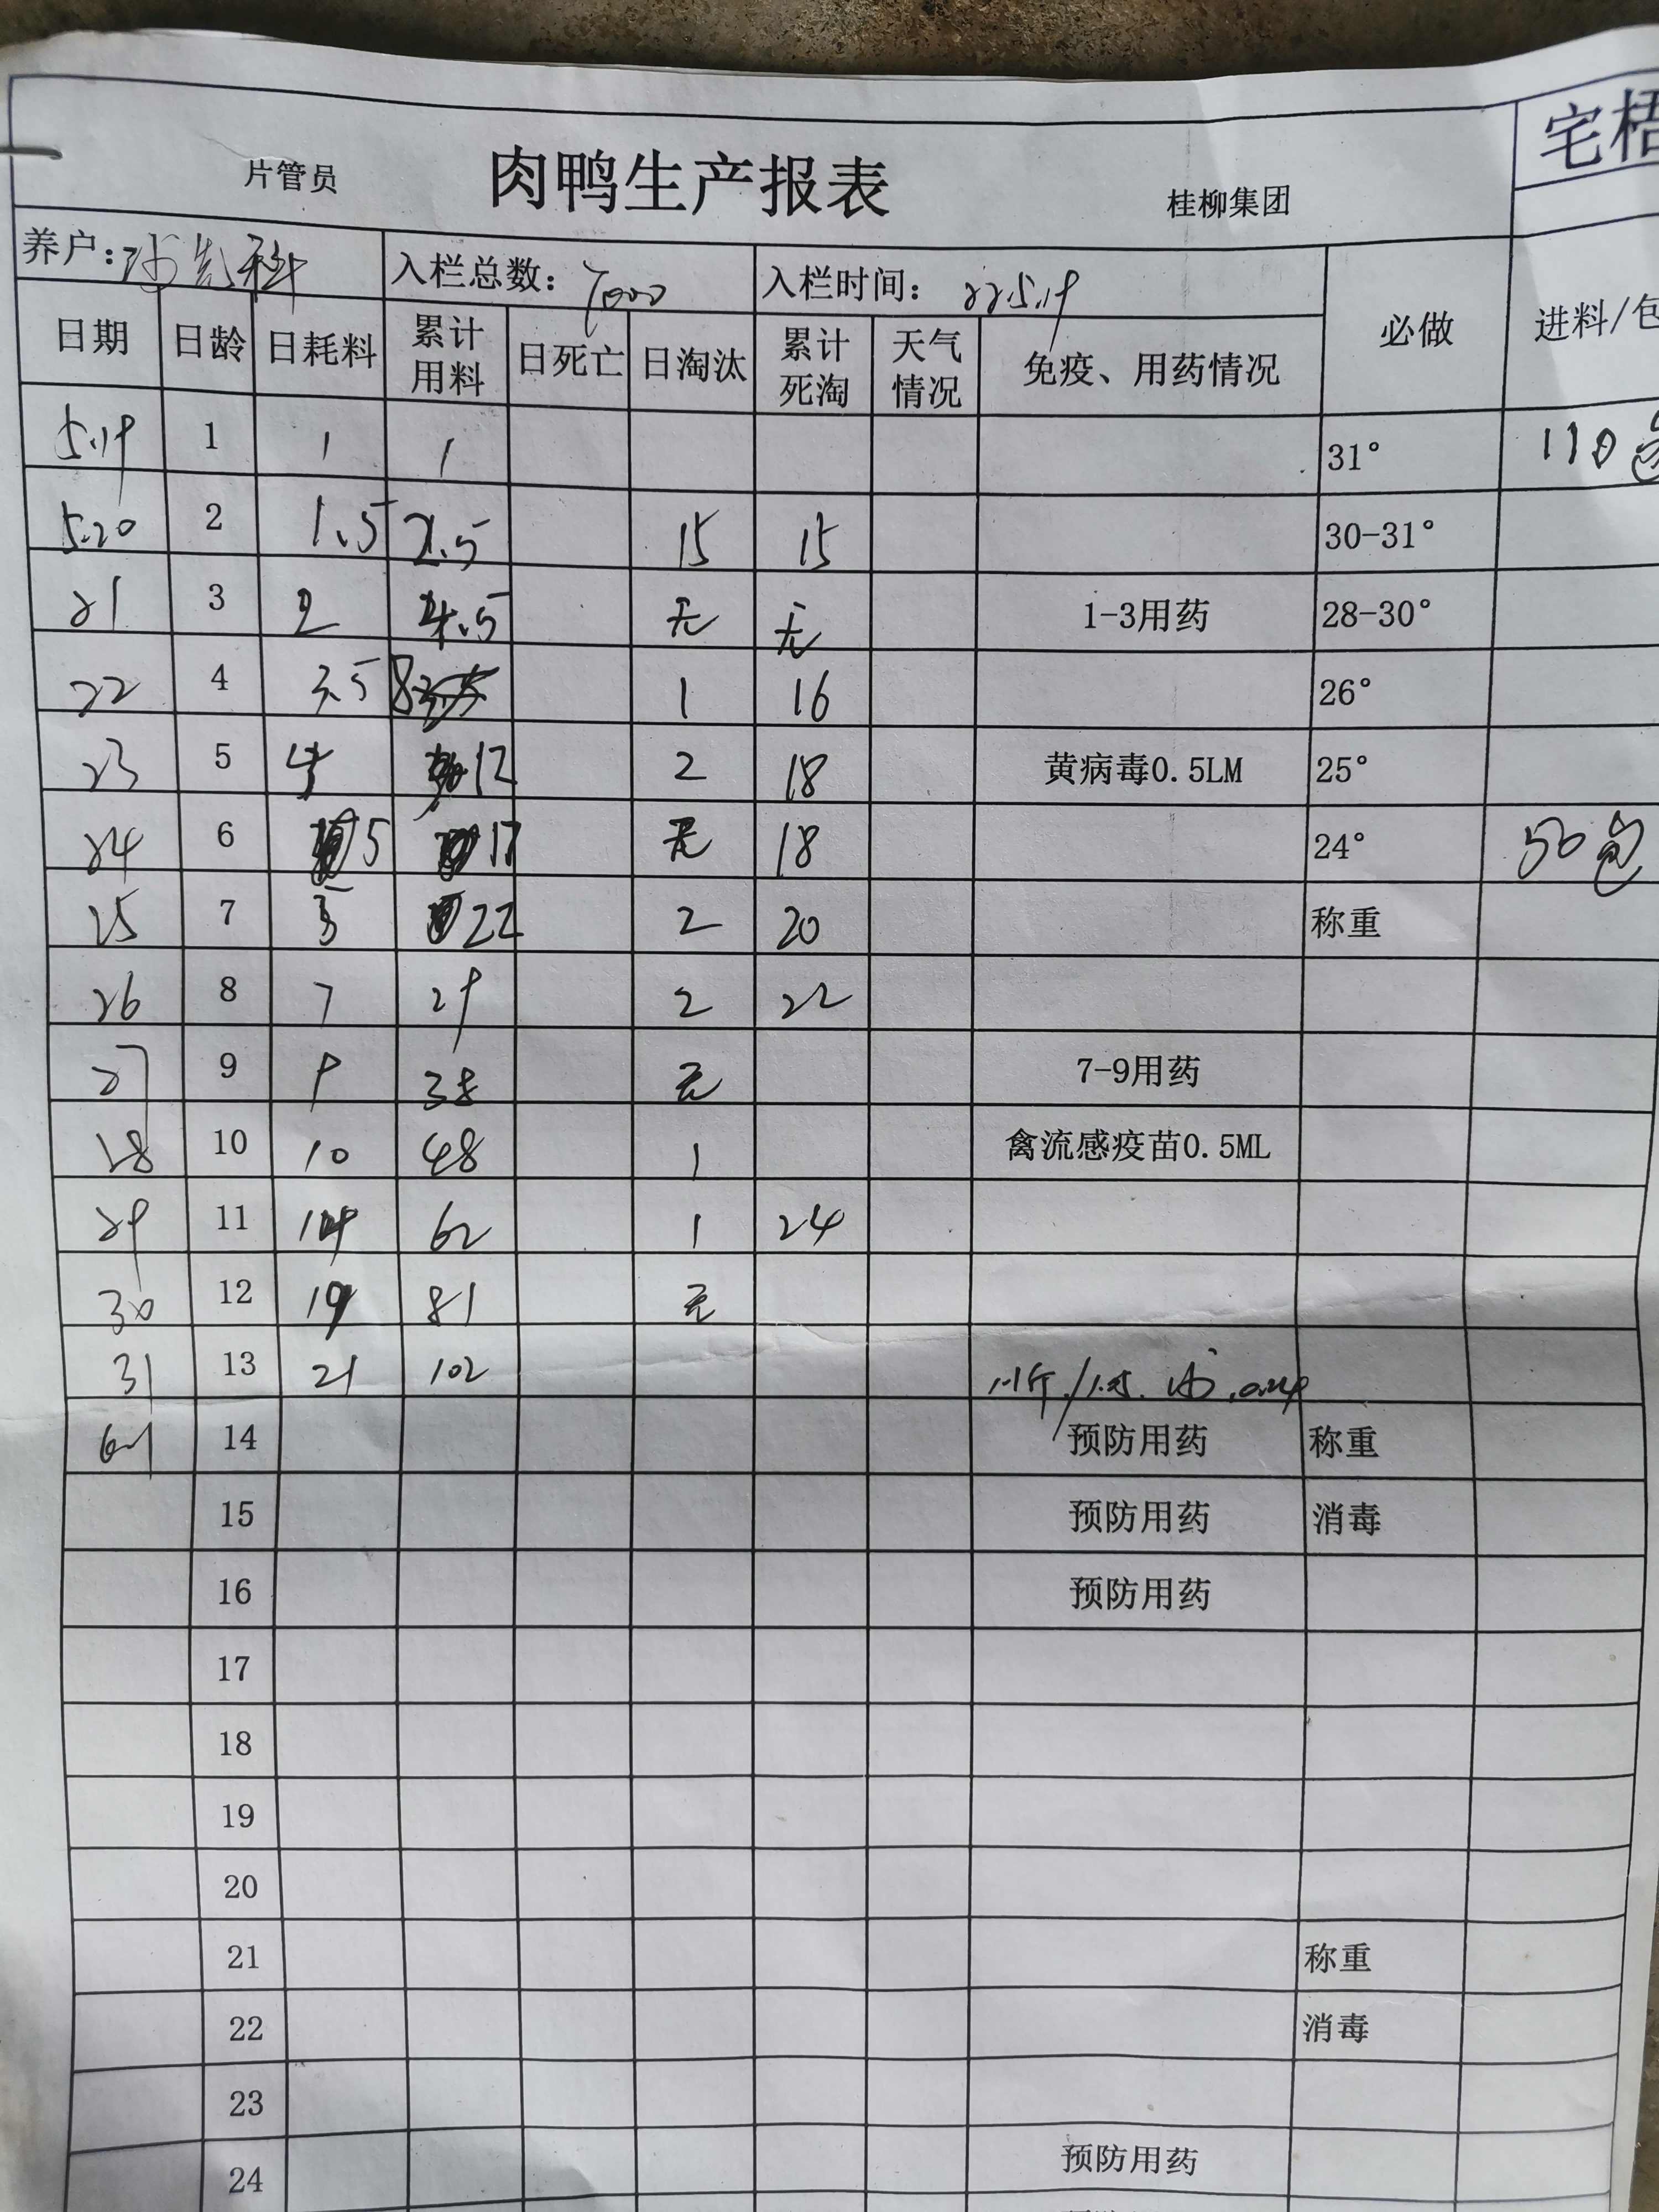 宅梧
片管员 肉鸭生产报表 桂柳集团
养户: 科 入栏总数: 7000 入栏时间: 22.5.19
日期 日龄 日耗料 累计用料 日死亡 日淘汰 累计死淘 天气情况 免疫、用药情况 必做 进料/包
5.19 1 1 1 31° 110包
5.20 2 1.5 2.5 15 15 30-31°
21 3 2 4.5 无 无 1-3用药 28-30°
22 4 3.5 8 1 16 26°
23 5 4 12 2 18 黄病毒0.5LM 25°
24 6 5 17 无 18 24° 50包
25 7 5 22 2 20 称重
26 8 7 29 2 22
27 9 9 38 无 7-9用药
28 10 10 48 1 禽流感疫苗0.5ML
29 11 14 62 1 24
30 12 19 81 无
31 13 21 102
6.1 14 预防用药 称重
15 预防用药 消毒
16 预防用药
17
18
19
20
21 称重
22 消毒
23
24 预防用药